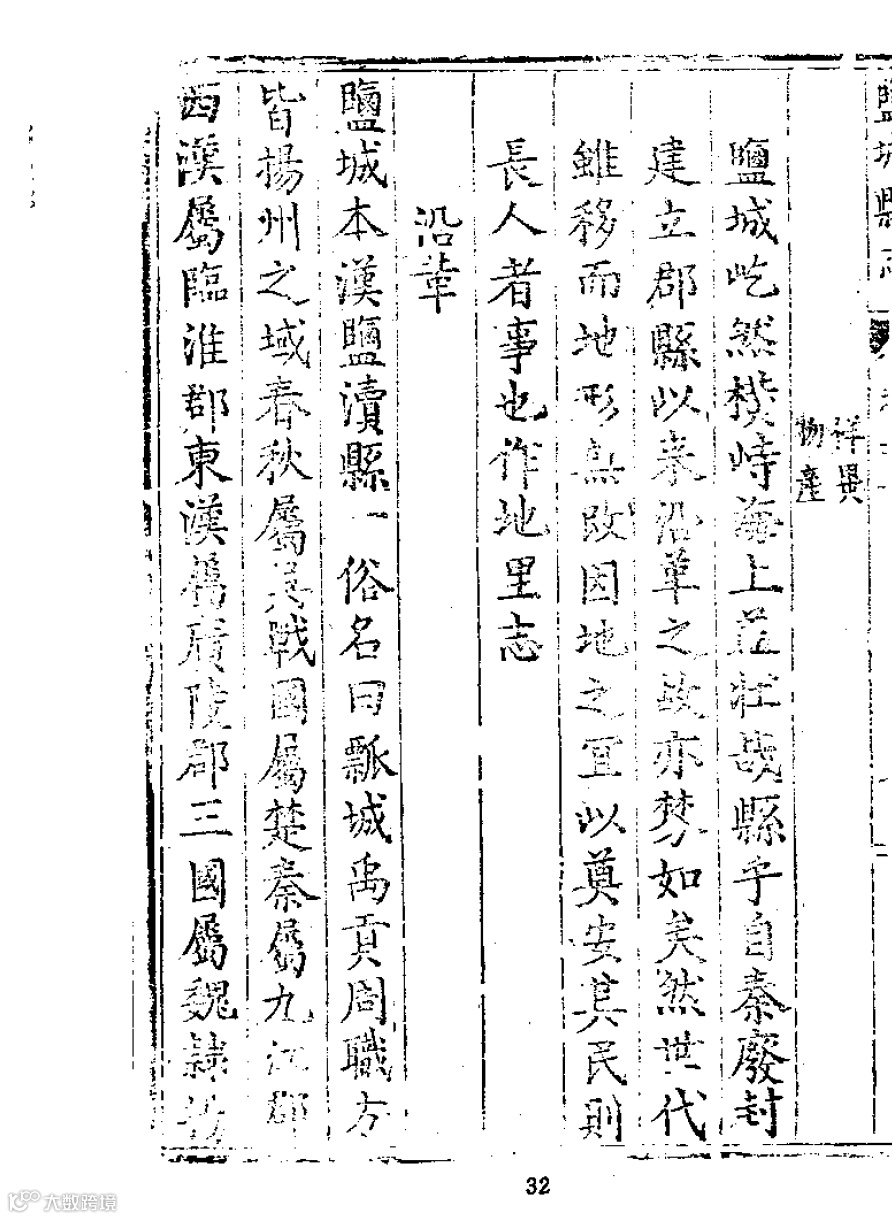 鹽城縣志
祥異
物產
鹽城屹然橫峙海上莊哉縣乎自秦廢封
建立郡縣以來沿革之故亦棼如矣然世代
雖移而地形無改因地之宜以奠安其民則
長人者事也作地里志
沿革
鹽城本漢鹽瀆縣一俗名曰瓢城禹貢周職方
皆揚州之域春秋屬吳戰國屬楚秦屬九江郡
西漢屬臨淮郡東漢屬廣陵郡三國屬魏隸
32
大数跨境